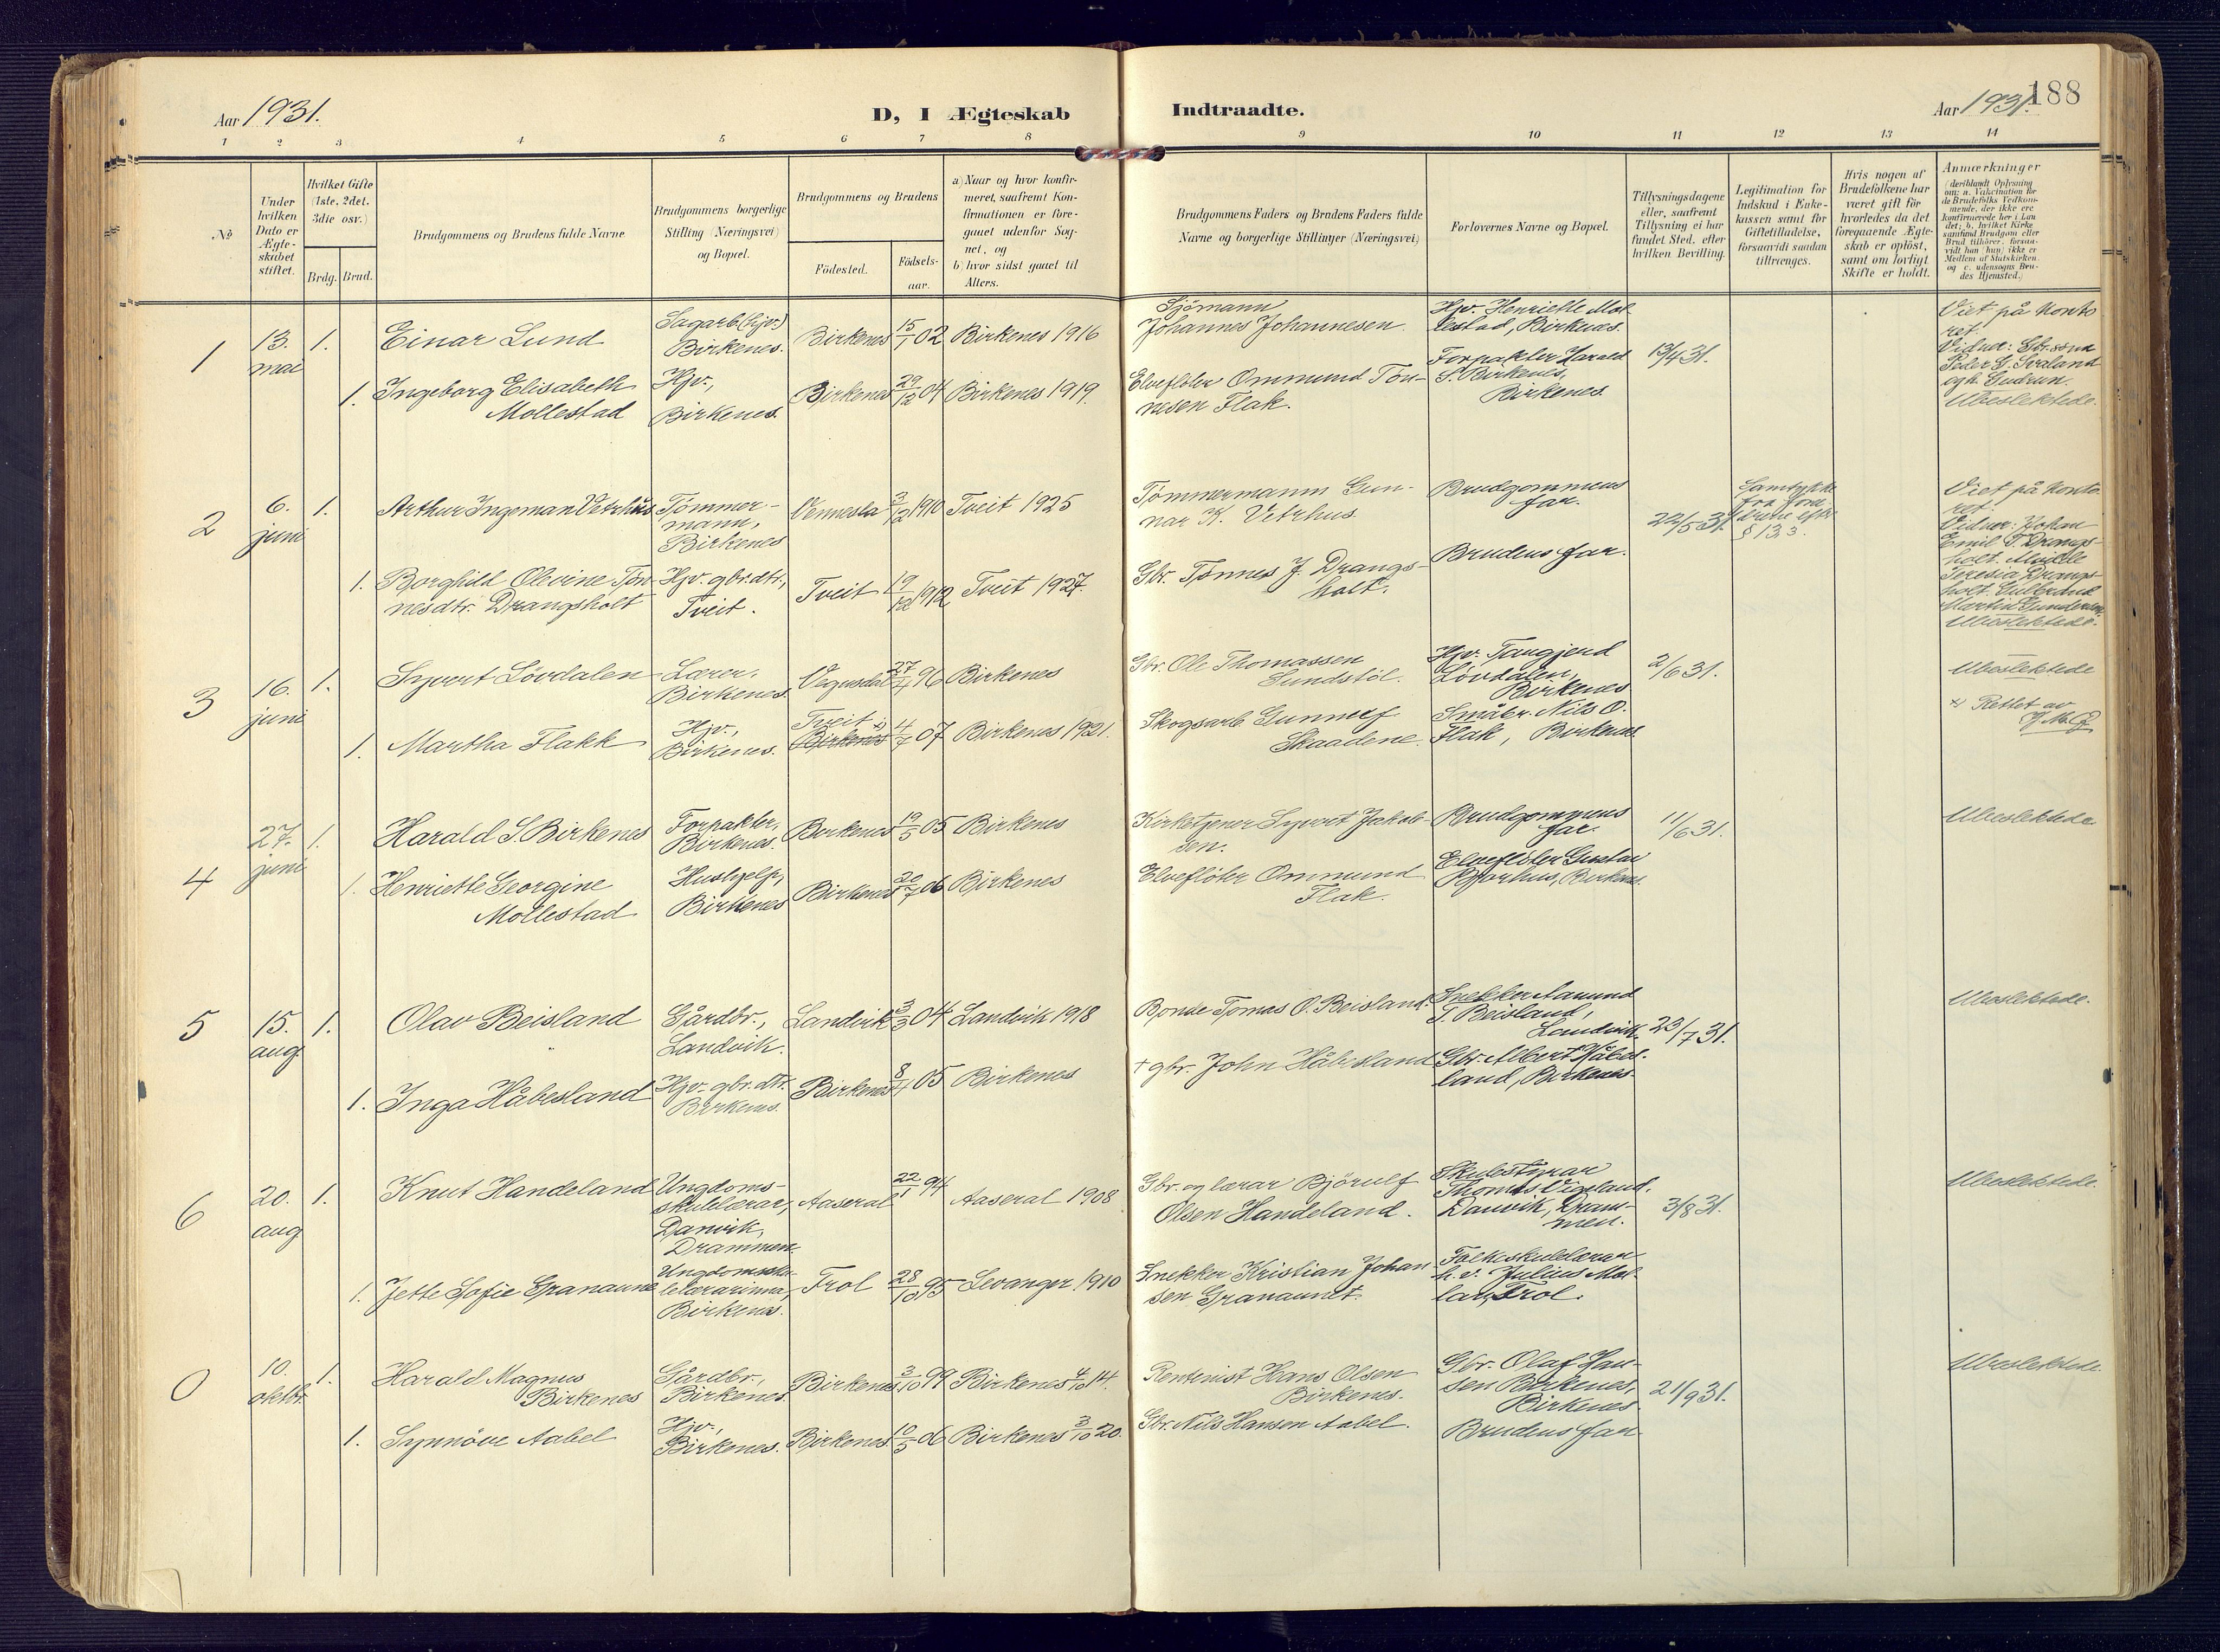 188
Aar 1931.
D, I Ægteskab
Indtraadte.
Aar 1931.
1 2 3 4 5 6 7 8 9 10 11 12 13 14
No
Under
hvilken
Dato er
Ægte-
skabet
stiftet.
Hvilket Gifte
(1ste, 2det,
3die osv.)
Brdg. Brud.
Brudgommens og Brudens fulde Navne
Brudgommens borgerlige
Stilling (Næringsvei)
og Bopæl.
Brudgommens og Brudens
Födested.
Födsels-
aar.
a) Naar og hvor konfir-
meret, saafremt Kon-
firmationen er fore-
gaaet udenfor Sog-
net, og
b) hvor sidst gaaet til
Alters.
Brudgommens Faders og Brudens Faders fulde
Navne og borgerlige Stillinger (Næringsvei)
Forlovernes Navne og Bopæl.
Tillysningsdagene
eller, saafremt
Tillysning ei har
fundet Sted, efter
hvilken Bevilling.
Legitimation for
Indskud i Enke-
kassen samt for
Giftetilladelse,
forsaavidt saadan
tiltrænges.
Hvis nogen af
Brudefolkene har
været gift för
hvorledes da det
foregaaende Ægte-
skab er oplöst,
samt om lovligt
Skifte er holdt.
Anmærkninger
(deriblandt Oplysning
om: a. Vaksination for
de Brudefolks Vedkom-
mende, der ikke ere
konfirmerede her i Lan
det; b. hvilket Kirke
samfund Brudgom eller
Brud tilhörer, forsaa-
vidt han (hun) ikke er
Medlem af Statskirken
og c. udensogns Bru-
des Hjemsted.)
1
13.
mai
1.
Einar Lund
Sagarb. (hjv.)
Birkenes.
Birkenes
15/1 02
Birkenes 1916
Sjömann
Johannes Johannesen.
Hjv. Henriette Mol-
lestad, Birkenes.
13/4 31.
Viet på konto
ret.
Vidner: Gbr. sønn
Peder G. Svaland
og h. Gudrun.
Ubeslektede.
1.
Ingeborg Elisabeth
Mollestad
Hjv.,
Birkenes.
Birkenes
29/12 04
Birkenes 1919.
Elvefløter Ommund Tøn-
nesen Flak.
Forpakter Harald
S. Birkenes,
Birkenes.
2
6.
juni
1.
Arthur Ingeman Vetrhus
Tømmer-
mann,
Birkenes
Vennesla
3/12 1910
Tveit 1925
Tømmermann Gun-
nar K. Vetrhus.
Brudgommens
far.
22/5 31.
Samtykke
fra fora
drene efter
§ 13,3.
Viet på konto
ret.
Vidner: Johan
Emil T. Drangs-
holt.
Teresia Drangs-
holt.
Martin Gundersen
Ubeslektede.
1.
Borghild Olevine Tøn
nesdtr. Drangsholt
Hjv. gbr.dtr.,
Tveit.
Tveit
19/12 1912
Tveit 1927.
Gbr. Tønnes J. Drangs-
holt.
Brudens far.
3
16.
juni
1.
Syvert Lövdalen
Lærer,
Birkenes.
Vegusdal
27/4 96
Birkenes
Gbr. Ole Thomassen
Sundstöl.
Hjv. Tangjerd
Lövdalen,
Birkenes
2/6 31.
Ubeslektede
x) Rettet av
1.
Martha Flakk
Hjv.,
Birkenes.
Tveit x)
Birkenes
4/7 07
Birkenes 1921.
Skogsarb. Gunnulf
Skaadene.
Småbr. Nils O.
Flak, Birkenes
4
27.
juni
1.
Harald S. Birkenes
Forpakter,
Birkenes.
Birkenes
19/5 05
Birkenes
Kirketjener Syvert Jakob-
sen.
Brudgommens
far.
11/6 31.
Ubeslektede.
1.
Henriette Georgine
Mollestad
Hushjelp,
Birkenes
Birkenes
20/7 06
Birkenes
Elvefløter Ommund
Flak.
Elvefløter Gustav
Bjorhus, Birkenes.
5
15.
aug.
1.
Olav Beisland
Gårdbr.,
Landvik.
Landvik
3/3 04
Landvik 1918
Bonde Tomas O. Beisland.
Snekker Aanund
T. Beisland,
Landvik.
23/7 31.
Ubeslektede.
1.
Inga Håbesland
Hjv. gbr.dtr.
Birkenes.
Birkenes
8/1 05
Birkenes
† gbr. John Håbesland
Gbr. Albert Håbes-
land, Birkenes.
6
20.
aug
1.
Knut Handeland
Ungdoms-
skulelærar,
Danvik,
Drammen.
Aaseral
22/1 94
Aaseral 1908
Gbr. og lærar Björulf
Olsen Handeland.
Skulestyrar
Thomas Vigeland,
Danvik, Dram-
men.
3/8 31.
Ubeslektede.
1.
Jette Sofie Granaune
Ungdomssku-
lelærarinna,
Birkenes.
Frol
28/10 95
Levanger 1910
Snekker Kristian Johan
sen Granaunet
Folkeskulelærar
h.v. Julius Mol-
lan, Frol.
0
10.
oktbr.
1.
Harald Magnus
Birkenes
Gårdbr.,
Birkenes.
Birkenes
3/10 99
Birkenes 4/10 14.
Rentenist Hans Olsen
Birkenes.
Gbr. Olaf Han-
sen Birkenes,
Birkenes
21/9 31.
Ubeslektede.
1.
Synnöve Aabel
Hjv.,
Birkenes.
Birkenes
10/5 06
Birkenes 3/10 20.
Gbr. Nils Hansen Aabel.
Brudens far